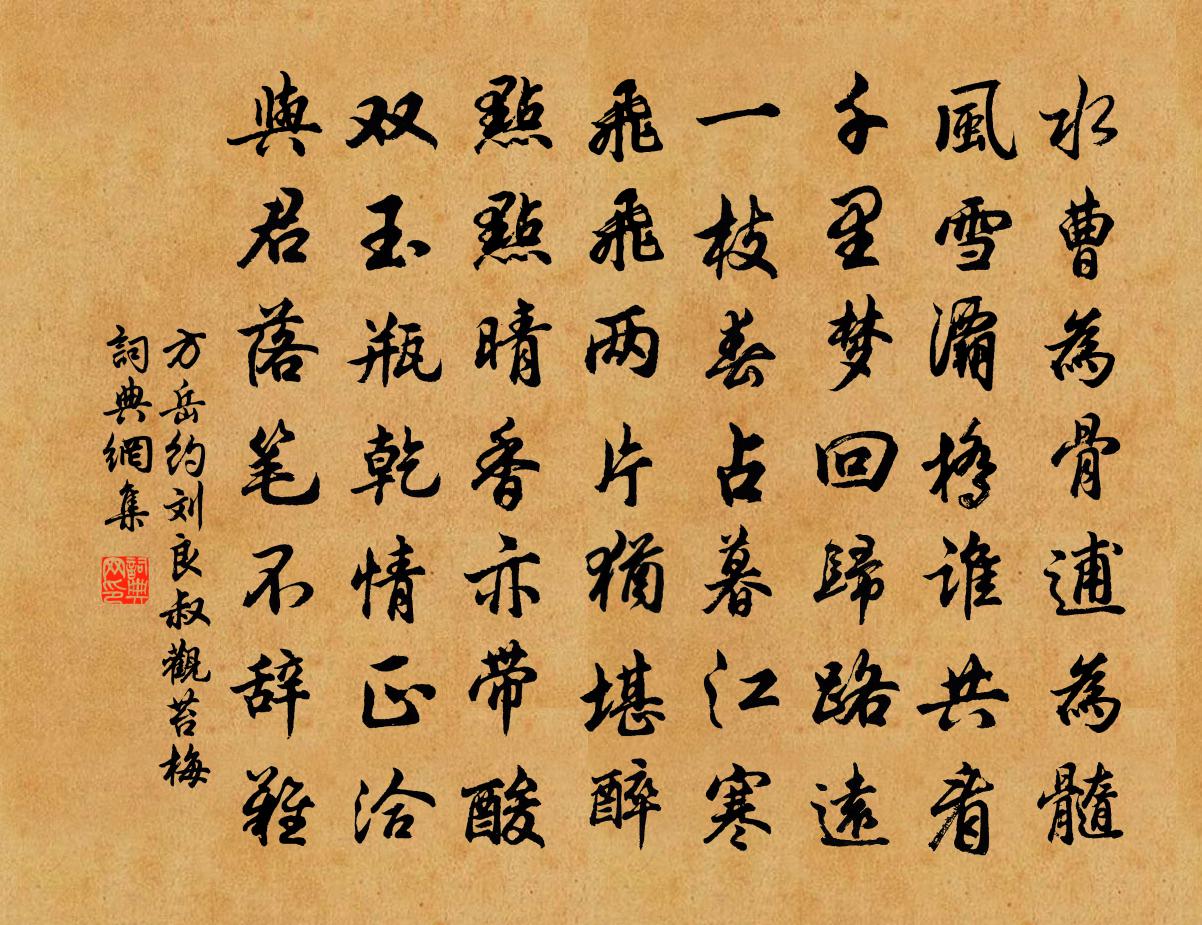 水曹為骨逋為髓
風雪灞橋谁共看
千里梦回歸路遠
一枝春占暮江寒
飛飛两片猶堪醉
點點晴香亦带酸
双玉瓶乾情正洽
與君落笔不辞難
方岳约刘良叔觀苔梅
詞典網集
詞典网印